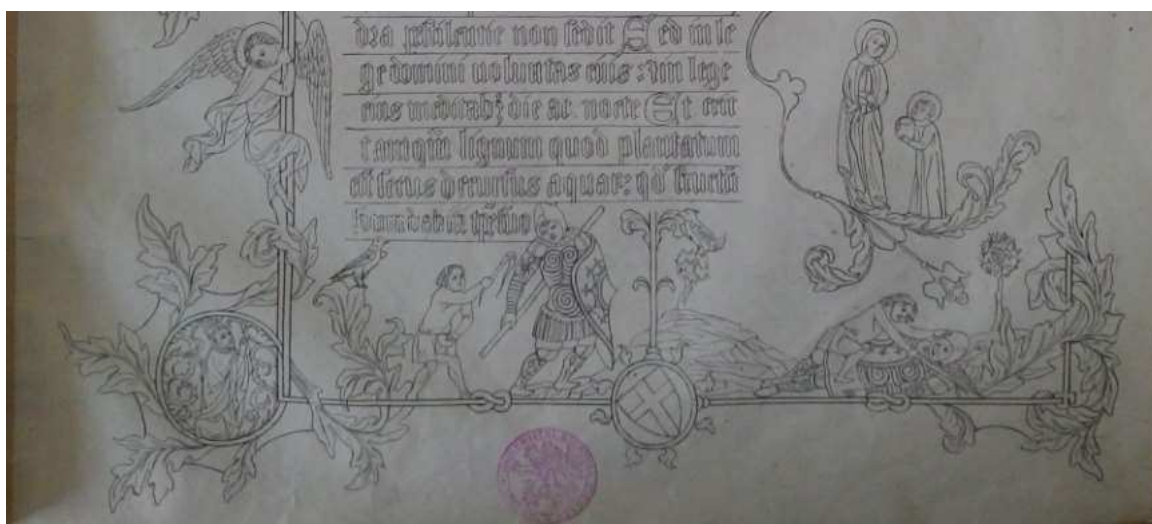 dra pestilencie non sedit Sed in le
ge domini uoluntas eius: in lege
eius meditabit᷑ die ac nocte Et erit
tamq̄m lignum quod plantatum
est secus decursus aquar: qd̄ fructū
suum dabit in suo